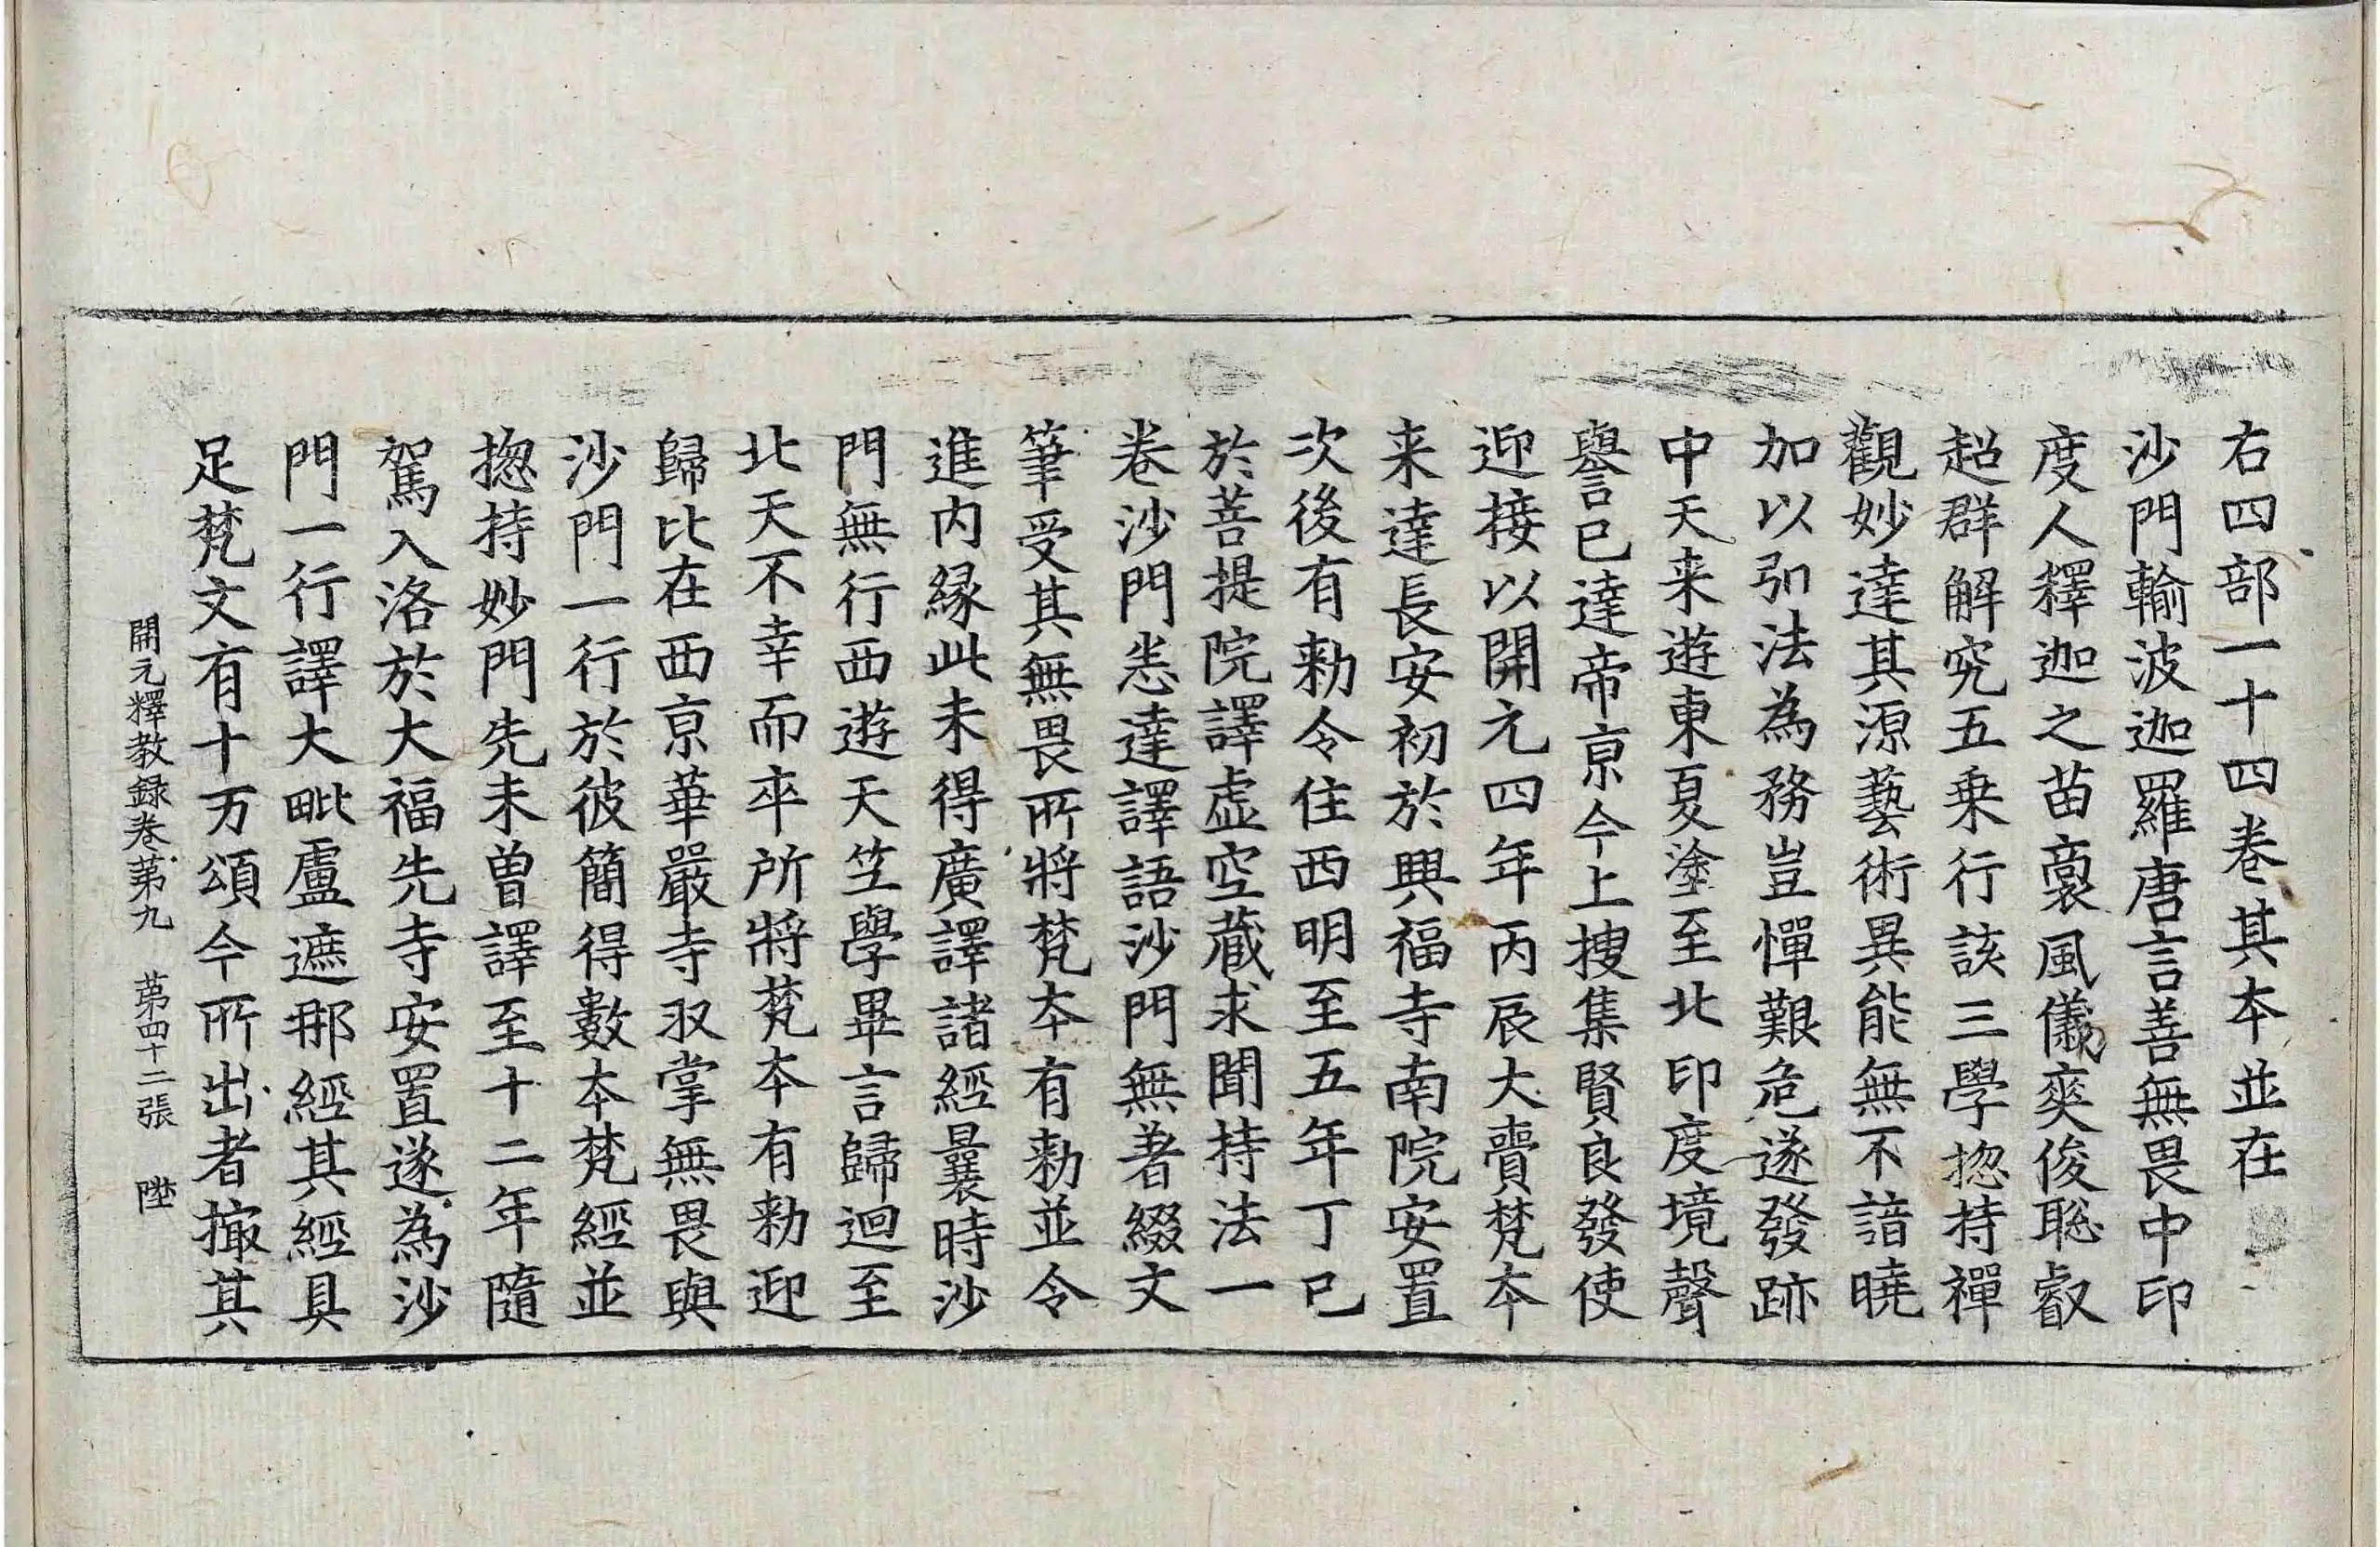 右四部一十四卷其本並在
沙門輸波迦羅唐言善無畏中印
度人釋迦之苗裔風儀奕俊聡叡
超群解究五乗行該三學揔持禪
觀妙達其源藝術異能無不諳曉
加以弘法為務豈憚艱危遂發跡
中天来遊東夏塗至北印度境聲
譽已達帝京今上搜集賢良發使
迎接以開元四年丙辰大賷梵本
来達長安初於興福寺南院安置
次後有勑令住西明至五年丁巳
於菩提院譯虚空藏求聞持法一
卷沙門悉達譯語沙門無著綴文
筆受其無畏所將梵本有勑並令
進内縁此未得廣譯諸經曩時沙
門無行西遊天竺學畢言歸迴至
北天不幸而卒所將梵本有勑迎
歸比在西京華嚴寺収掌無畏與
沙門一行於彼簡得數本梵經並
揔持妙門先未曽譯至十二年隨
駕入洛於大福先寺安置遂為沙
門一行譯大毗盧遮那經其經具
足梵文有十万頌今所出者撮其
開元釋教録卷第九 第四十二張 陞